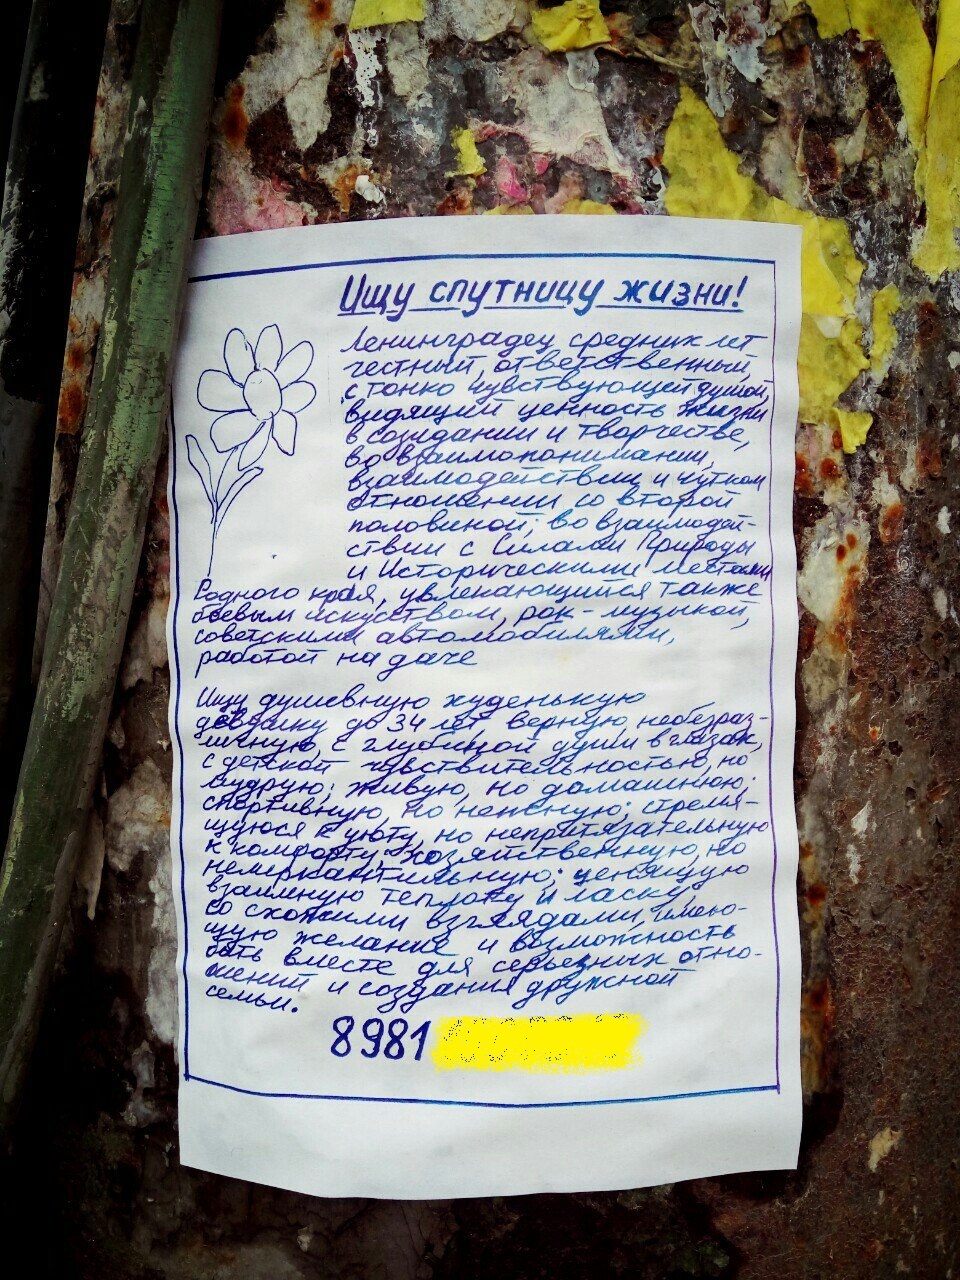 Ищу спутницу жизни!
Ленинградец средних лет
честный, ответственный
с тонко чувствующей душой,
видящий ценность жизни
в созидании и творчестве,
во взаимопонимании,
взаимодействии и чутком
отношении со второй
половиной; во взаимодей-
ствии с Силами Природы
и Историческими местами
Родного края, увлекающийся также
боевым искусством, рок-музыкой,
советскими автомобилями,
работой на даче
Ищу душевную худенькую
девушку до 34 лет, верную, небезраз-
личную, с глубиной души в глазах,
с детской чувствительностью, но
мудрую; живую, но домашнюю;
спортивную, но нежную; стремя-
щуюся к уюту, но непритязательную
к комфорту; хозяйственную, но
немеркантильную; ценящую
взаимную теплоту и ласку,
со схожими взглядами, имею-
щую желание и возможность
быть вместе для серьезных отно-
шений и создания дружной
семьи.
8981